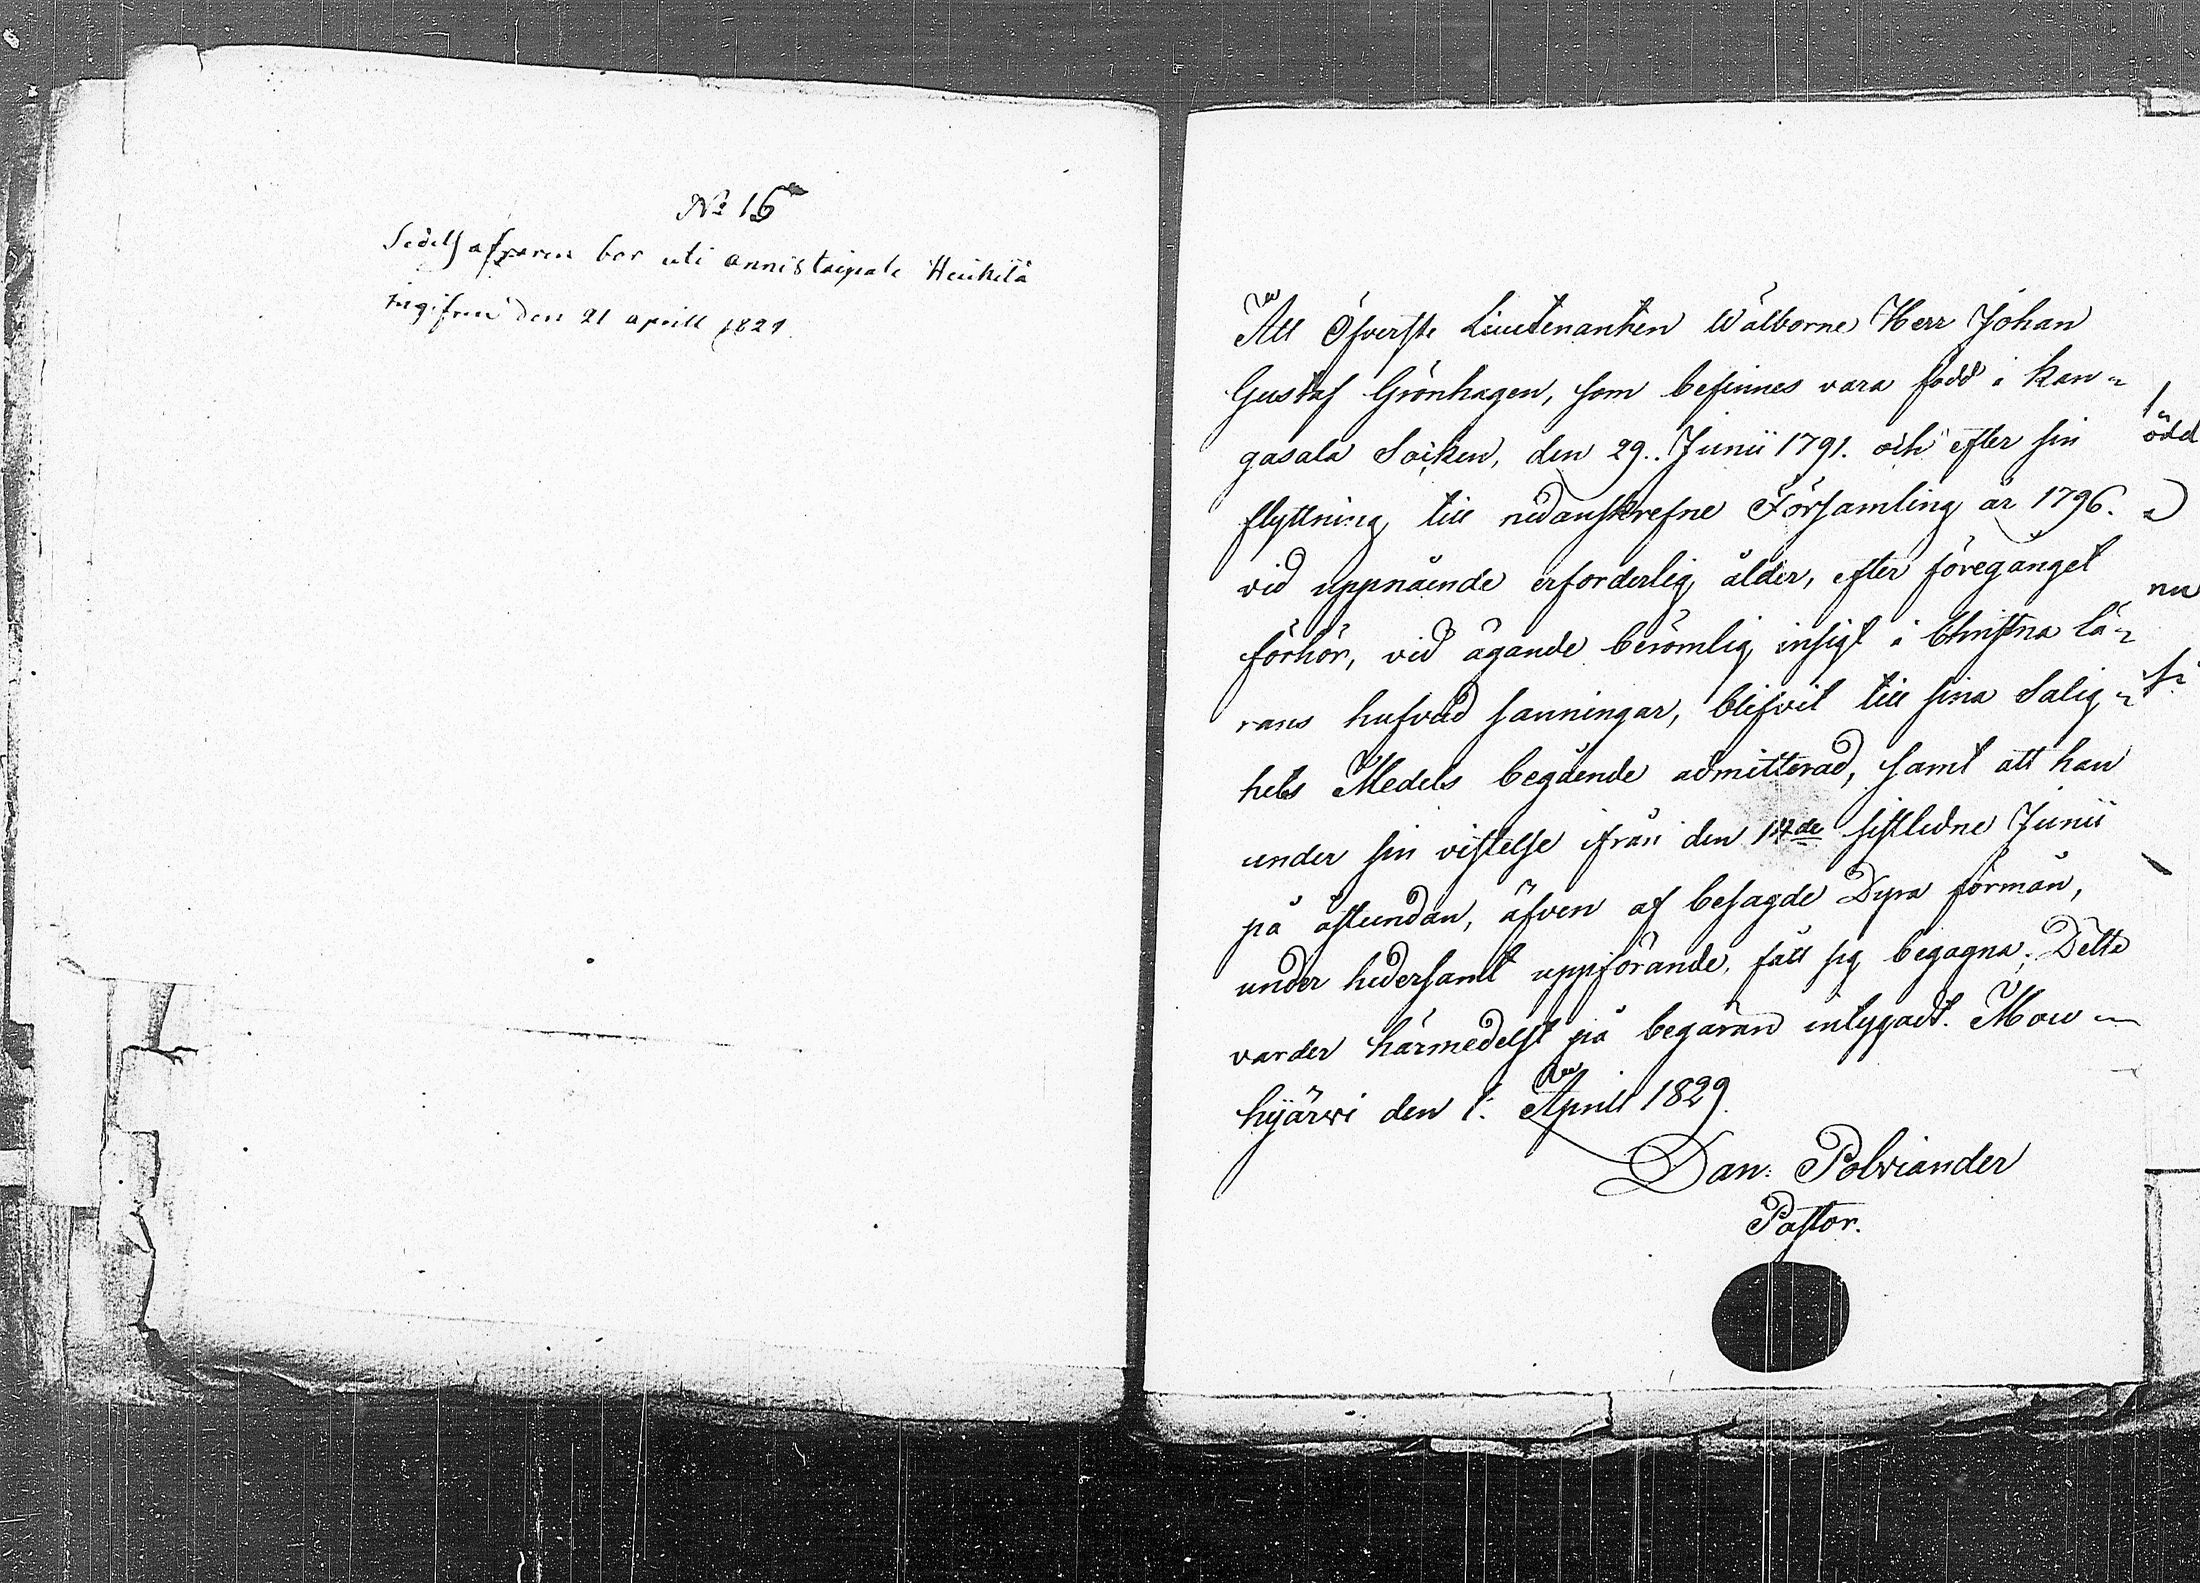 No 16
bor uti Annistaipale Heikilä
ingifven den 21 aprill 1829.
Att Öfverste Lieutenanten Wälborne Herr Johan
Gustaf Grönhagen, som befinnes vara född i Kan=
gasala Socken, den 29. Junii 1791. och efter sin
flyttning till nedanskrefne Församling år 1796.
vid uppnående erforderlig ålder, efter föregånget
förhör, vid ägande berömlig insigt i Christna lä=
rans hufvud sanningar, blifvit till sina Salig=
hets Medels begående admitterad, samt att han
under sin vistelse ifrån den 14de sistledne Junii
på åstundan, äfven af besagde Dyra förmån,
under hedersamt uppförande, fått sig begagna; Detta
varder härmedelst på begäran intygadt. Mou=
hijärwi den 1. April 1829.
Dan. Polviander
Pastor.
ödd
nu